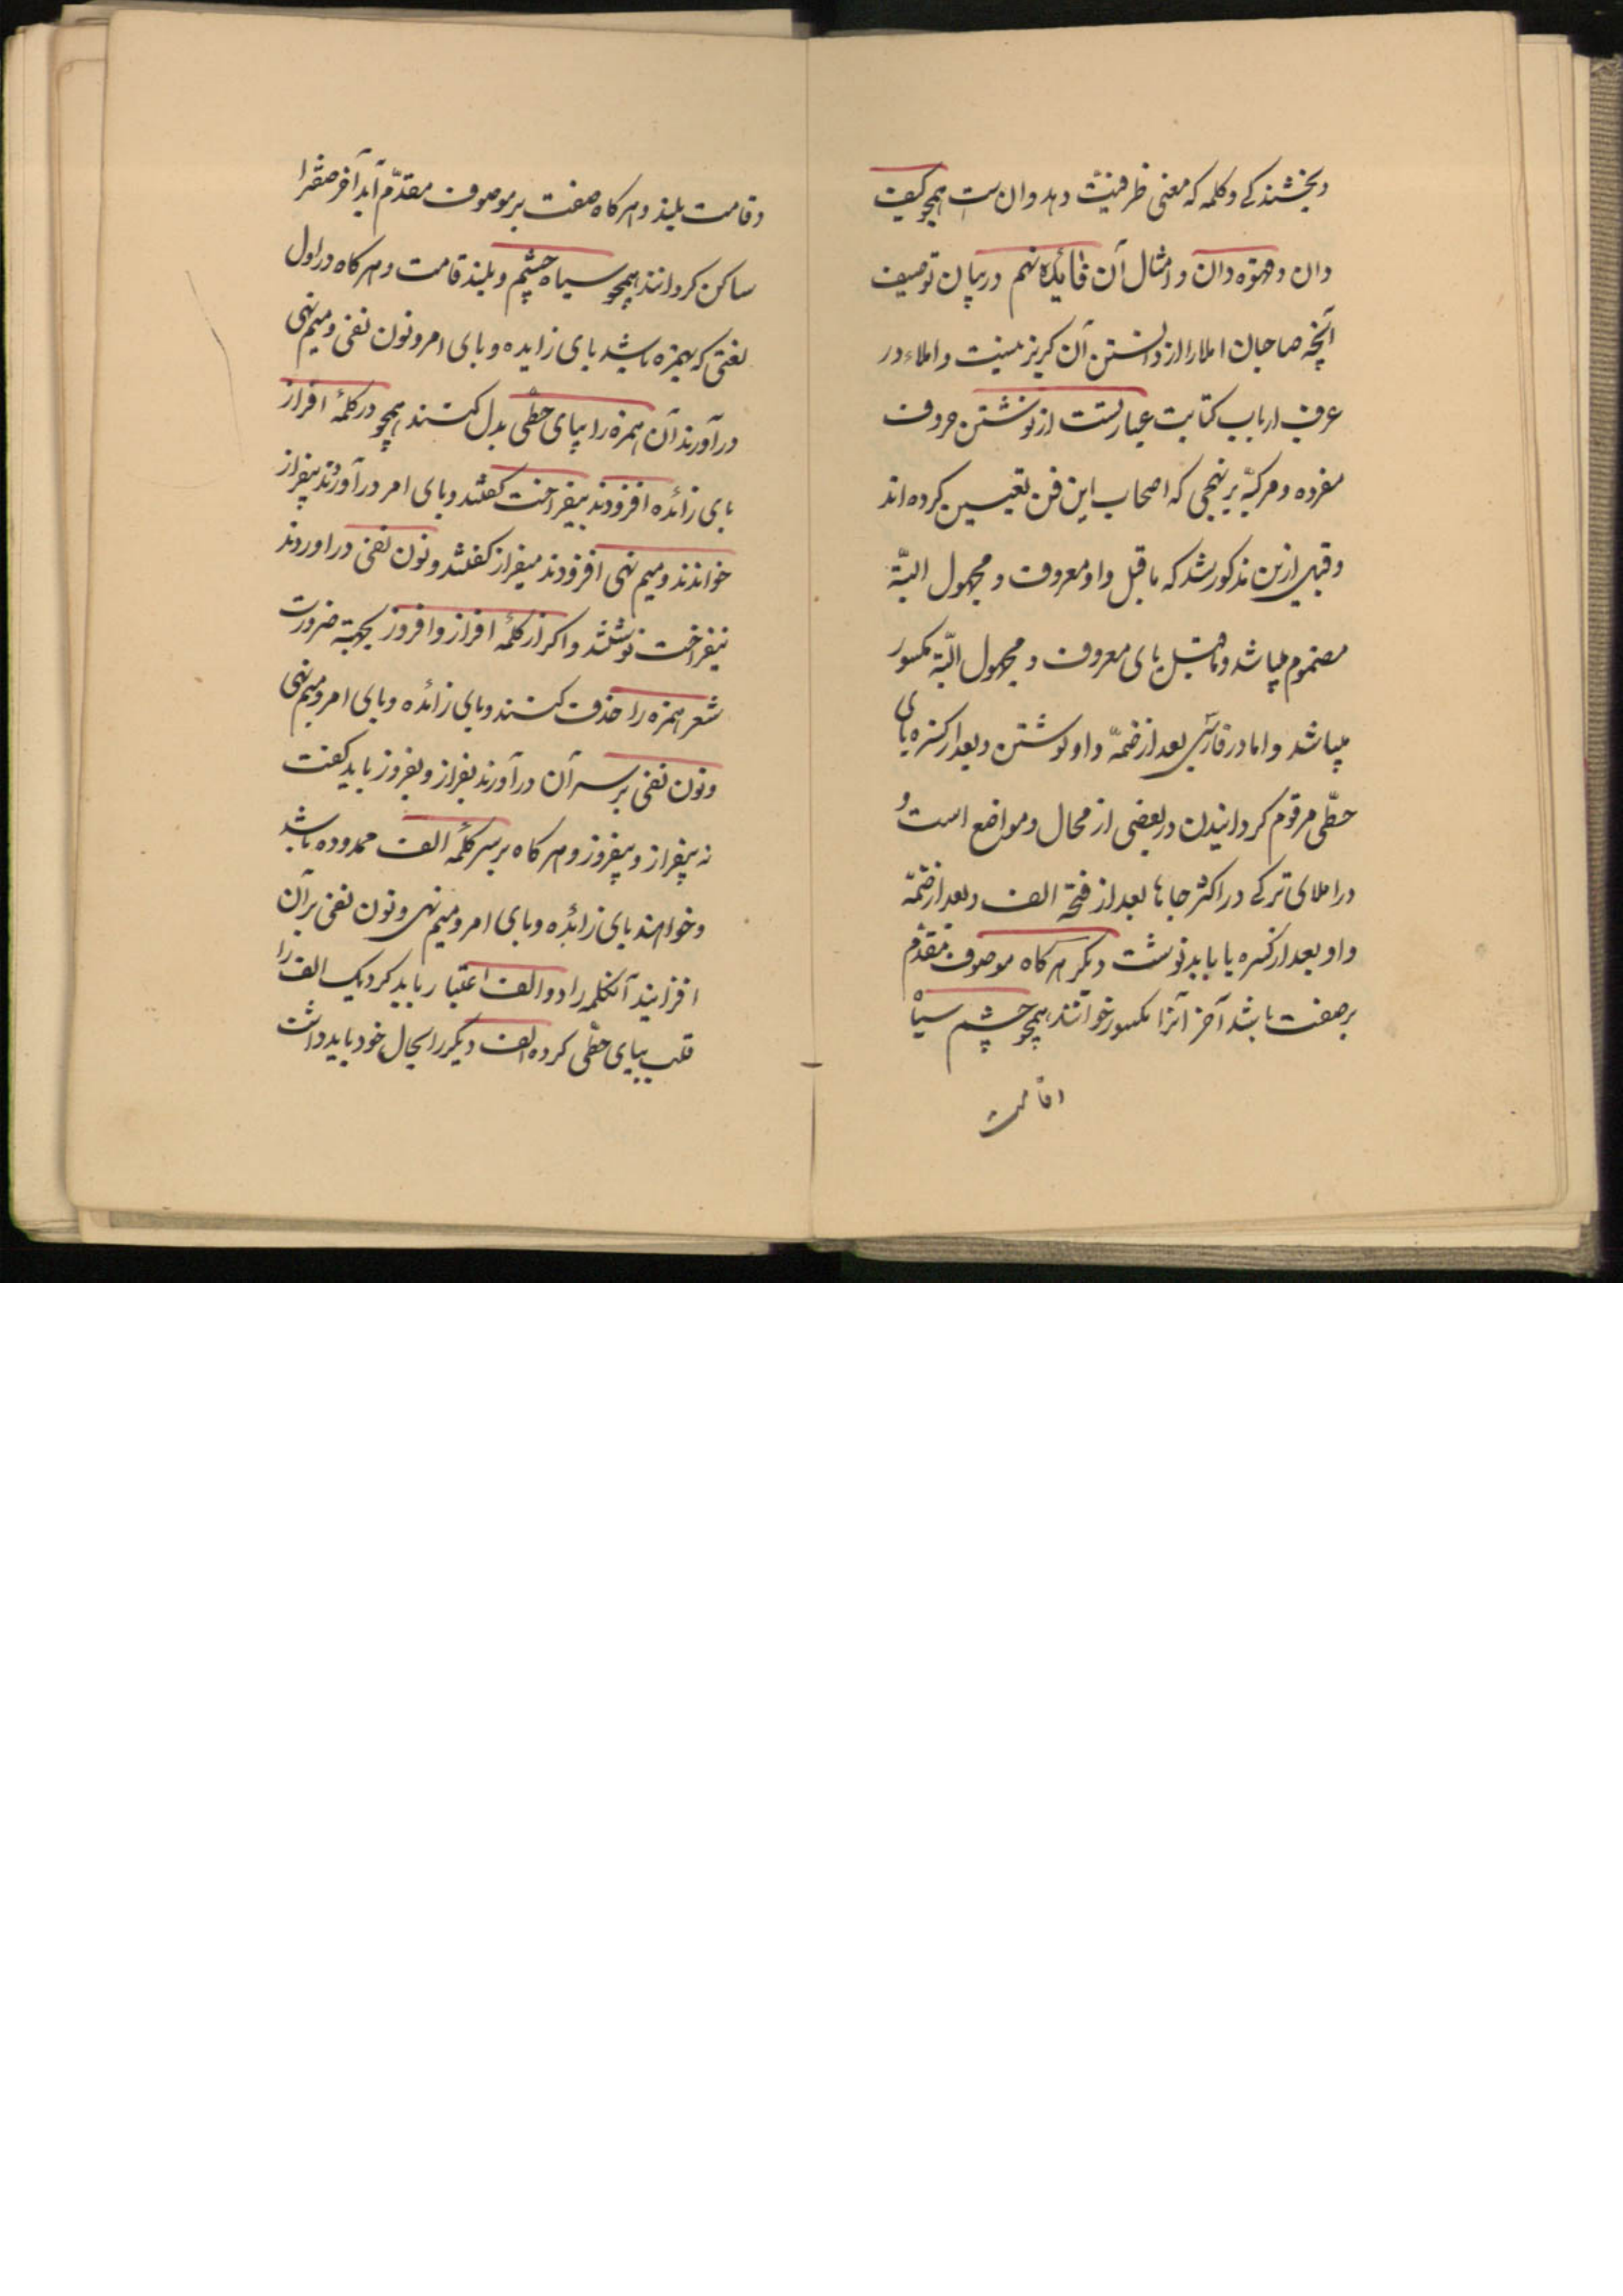 وبخشندکی وکلمه که معنی ظرفیّت دهد وان ست همچو کیف
دان وقهوه دان وامثال آن فائدهٔ نهم دربیان توصیف
آنچه صاحبان املارا از دانستن آن کریز نیست واملاء در
عرف ارباب کتابت عبارتست از نوشتن حروف
مفرده ومرکبّه بر نهجی که اصحاب این فن تعیین کرده اند
وقبل ازین مذکور شد که ماقبل واو معروف ومجهول البتّه
مضموم میباشد وماقبل یای معروف ومجهول البتّه مکسور
میباشد واما در فارسی بعد از ضمّه واو نوشتن وبعد از کسره یای
حطّی مرقوم کردانیدن در بعضی از محال ومواضع است و
در املای ترکی در اکثر جاها بعد از فتحه الف وبعد از ضمّه
واو بعد از کسره یا باید نوشت دیکر هرکاه موصوف مقدّم
بر صفت باشد آخر آنرا مکسور خوانند همچو چشم سیاه
وقامت
وقامت بلند وهرکاه صفت بر موصوف مقدّم آید آخر صفترا
ساکن کردانند همچو سیاه چشم وبلند قامت وهرکاه در اول
لغتی که بهمزه باشد بای زایده وبای امر ونون نفی ومیم نهی
درآورند آن همزه را بیای حطّی بدل کنند همچو در کلمهٔ افراز
بای زائده افزودند بیفراخت کفتند وبای امر درآوردند بیفراز
خواندند ومیم نهی افزودند میفراز کفتند ونون نفی دراوردند
نیفراخت نوشتند واکر از کلمهٔ افراز وافروز بجهتهٔ ضرورت
شعر همزه را حذف کنند وبای زائده وبای امر ومیم نهی
ونون نفی بر سر آن درآورند بفراز وبفروز باید کفت
نه بیفراز وبیفروز وهرکاه بر سر کلمهٔ الف ممدوده باشد
وخواهند بای زائده وبای امر ومیم نهی ونون نفی بر آن
افزایند آنکلمه را دو الف اعتبار باید کرد یک الف را
قلب بیای حطّی کرده الف دیکر را بحال خود باید داشت